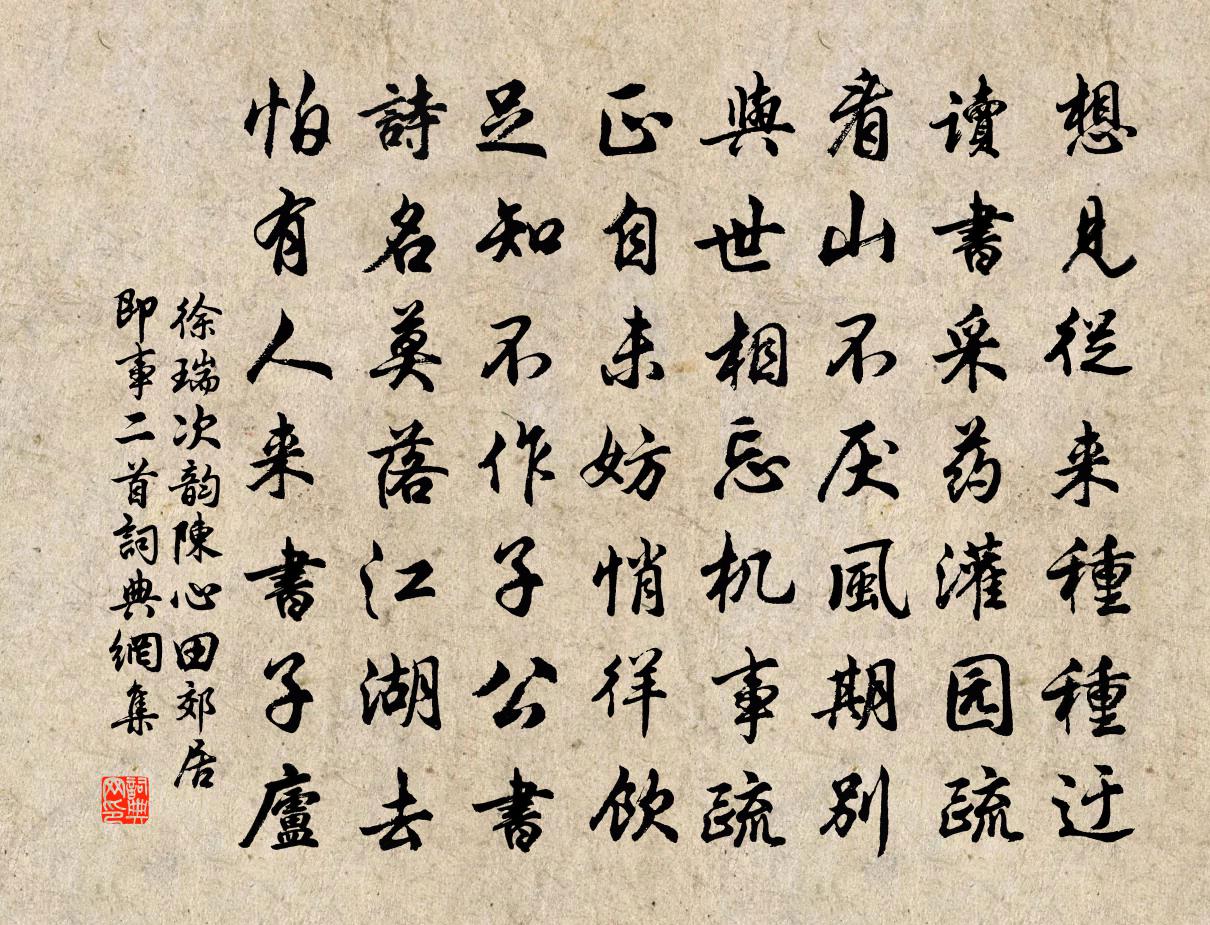 想見從来種種迂
讀書采药灌园疏
看山不厌風期别
與世相忘机事疏
正自未妨悄徉饮
足知不作子公書
詩名莫落江湖去
怕有人来書子廬
徐瑞次韵陳心田郊居
即事二首詞典網集
詞典网印